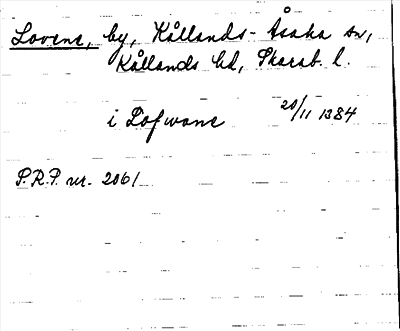 Lovene, by, Kållands-Åsaka sn,
Kållands hd, Skarab. l.
i Lofwene 20/11 1384
P.R.P. nr. 2061